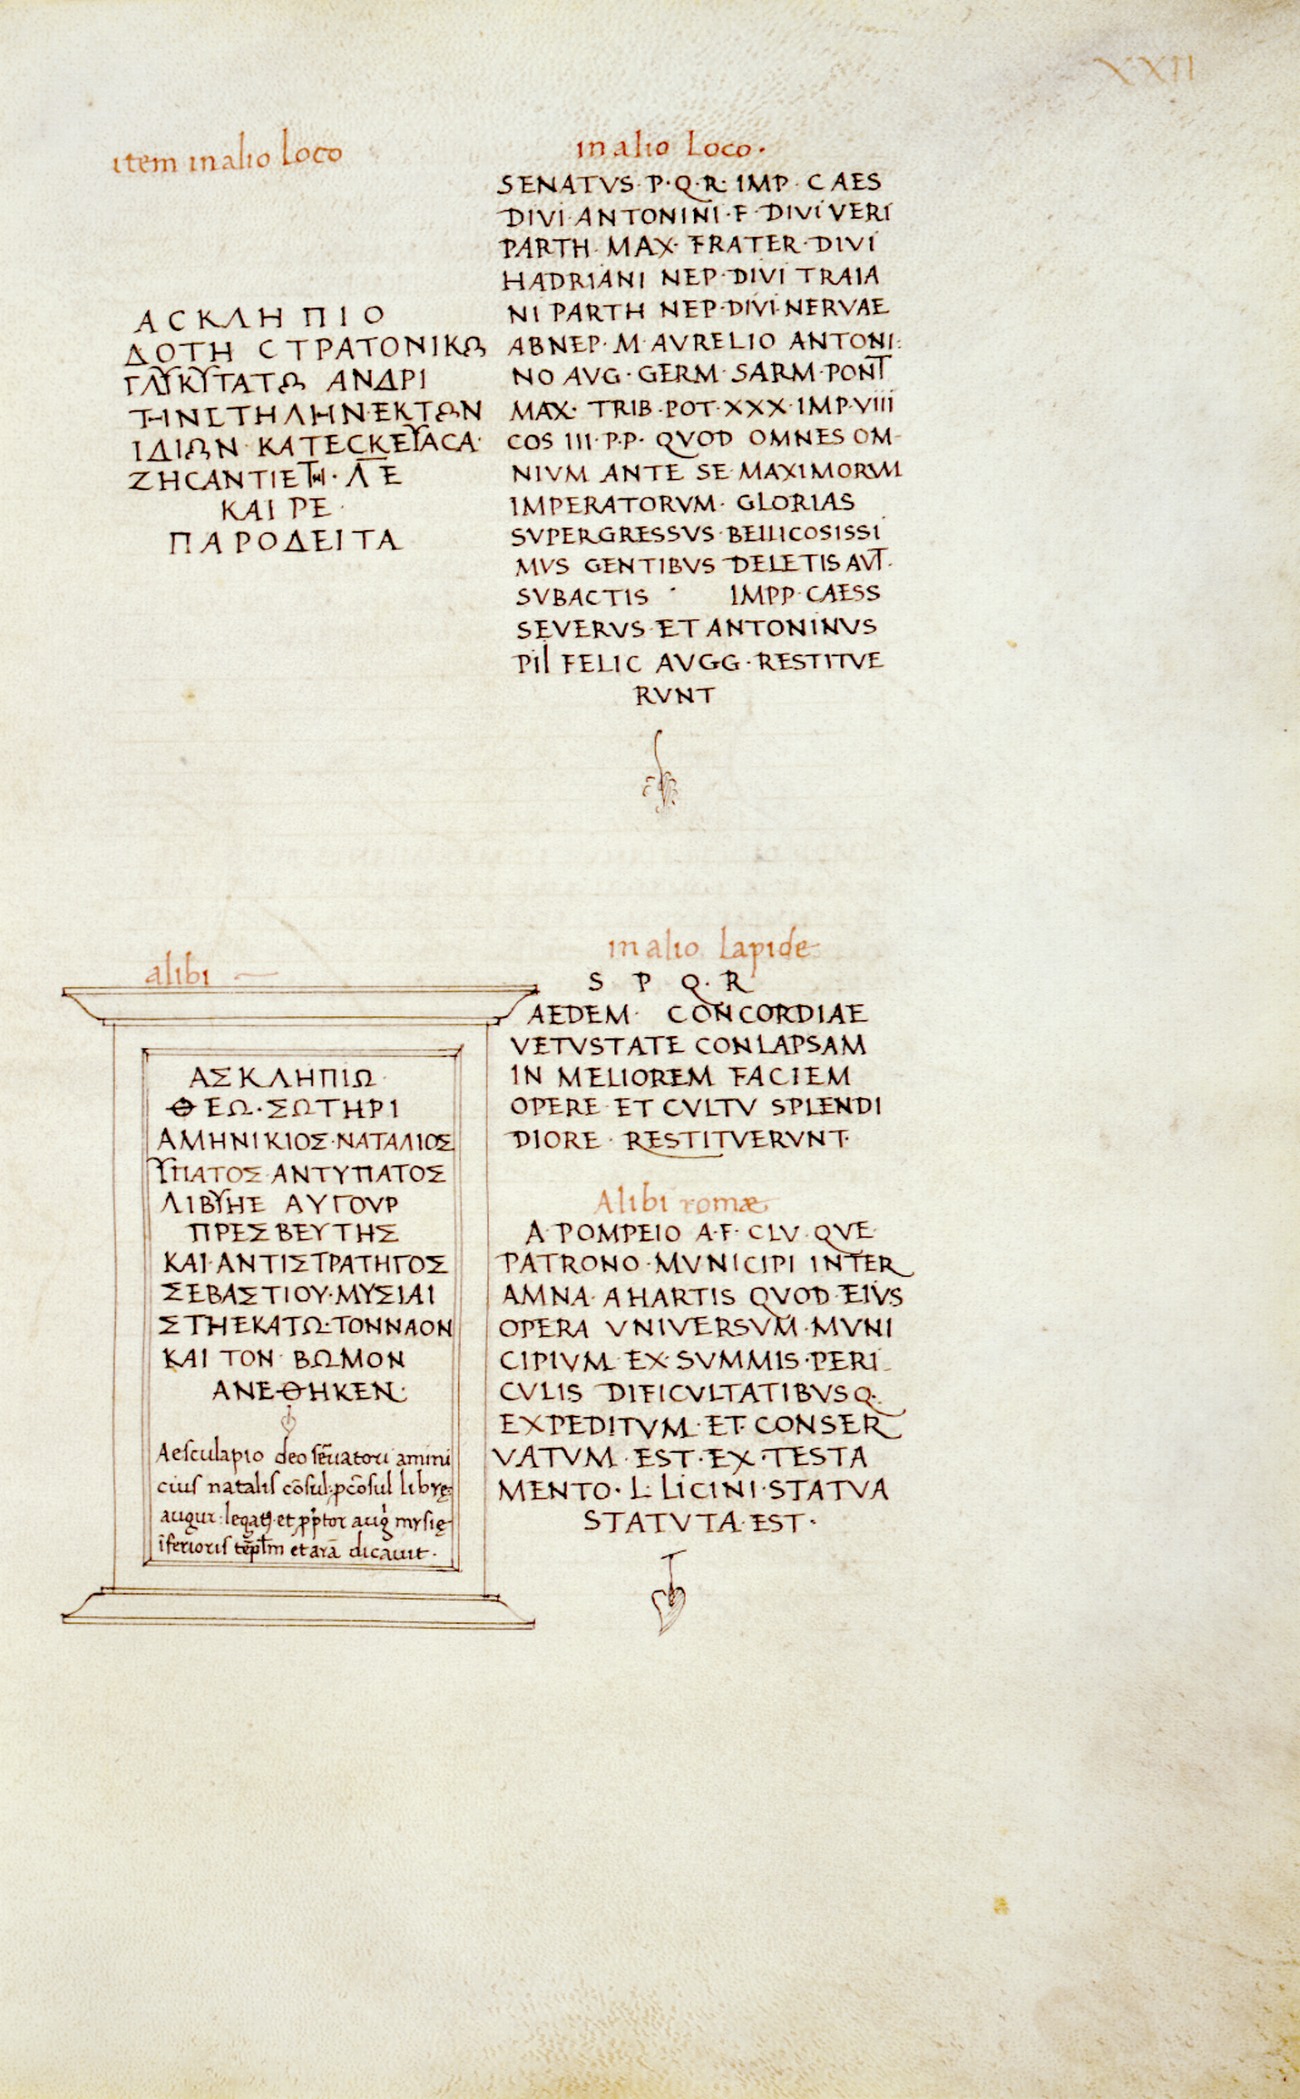 XXII
item in alio loco
ΑCΚΛΗΠΙΟ
ΔΟΤΗ CΤΡΑΤΟΝΙΚΩ
ΓΛΥΚΥΤΑΤΩ ΑΝΔΡΙ
ΤΗΝ CΤΗΛΗΝ·ΕΚ ΤΩΝ
ΙΔΙΩΝ· ΚΑΤΕCΚΕΥΑCΑ·
ΖΗCΑΝΤΙ ΕΤΗ· ΛΕ
ΚΑΙΡΕ·
ΠΑΡΟΔΕΙΤΑ
in alio Loco·
SENATVS·P·Q·R· IMP·CAES
DIVI·ANTONINI·F·DIVI VERI
PARTH·MAX·FRATER·DIVI
HADRIANI NEP·DIVI TRAIA
NI PARTH NEP·DIVI·NERVAE
ABNEP·M·AVRELIO ANTONI·
NO AVG·GERM·SARM·PONT
MAX· TRIB·POT·XXX·IMP·VIII
COS III·P·P· QVOD OMNES OM-
NIVM ANTE SE MAXIMORVM
IMPERATORVM· GLORIAS
SVPERGRESSVS·BELLICOSISSI
MVS GENTIBVS DELETIS AVT·
SVBACTIS · IMPP·CAESS
SEVERVS·ET ANTONINVS
PII FELIC AVGG·RESTITVE
RVNT
alibi
ΑΣΚΛΗΠΙΩ·
ΘΕΩ·ΣΩΤΗΡΙ
ΑΜΗΝΙΚΙΟΣ·ΝΑΤΑΛΙΟΣ
ΥΠΑΤΟΣ·ΑΝΤΥΠΑΤΟΣ
ΛΙΒΥΗΣ ΑΥΓΟΥΡ
ΠΡΕΣΒΕΥΤΗΣ
ΚΑΙ·ΑΝΤΙΣΤΡΑΤΗΓΟΣ
ΣΕΒΑΣΤΙΟΥ·ΜΥΣΙΑΙ
ΣΤΗΕΚΑΤΩ·ΤΟΝΝΑΟΝ
ΚΑΙ ΤΟΝ·ΒΩΜΟΝ
ΑΝΕΘΗΚΕΝ·
Aesculapio deo ser̄uatori amini
cius natalis cōsul·pcōsul librę
augur·legatꝯ·et pptor aug mysię
īferioris tēpl̄m et arā dicauit·
in alio Lapide
S P Q·R
AEDEM· CONCORDIAE
VETVSTATE CONLAPSAM
IN MELIOREM FACIEM
OPERE·ET CVLTV SPLENDI
DIORE· RESTITVERVNT·
Alibi romæ
A·POMPEIO A·F·CLV·QVE
PATRONO·MVNICIPI INTER
AMNA·AHARTIS QVOD·EIVS
OPERA VNIVERSVM·MVNI
CIPIVM·EX·SVMMIS·PERI
CVLIS DIFICVLTATIBVSQ·
EXPEDITVM·ET·CONSER
VATVM·EST·EX·TESTA
MENTO·L·LICINI·STATVA
STATVTA·EST·